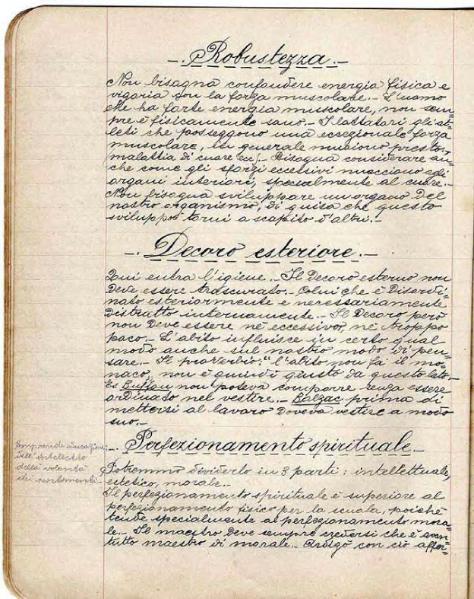 Robustezza.
Non bisogna confondere energia fisica e
vigoria con la forza muscolare. L'uomo
che ha forte energia muscolare, non sem
pre è fisicamente sano. I lottatori gli at
leti che posseggono una eccezionale forza
muscolare, in generale muoiono presto
malattia di cuore ecc). Bisogna considerare an
che come gli sforzi eccessivi nuocciono agli
organi interiori, specialmente al cuore.
Non bisogna sviluppare un organo del
nostro organismo, di guisa che questo
sviluppo torni a scapito d'altri.
Decoro esteriore.
Qui entra l'igiene. Il Decoro esterno non
deve essere trascurato. Colui che è disordi
nato esteriormente è necessariamente
distratto internamente. Il Decoro però
non deve essere nè eccessivo, nè troppo
poco. L'abito influisce in certo qual
modo anche sul nostro modo di pen
sare. Il proverbio: "l'abito non fa il mo
naco, non è quindi giusto da questo lato.
Es Buffon non poteva comporre senza essere
ordinato nel vestire. Balzac prima di
mettersi al lavoro doveva vestire a modo
suo.
Perfezionamento spirituale
Comprende educazione
dell'intelletto
della volontà
dei sentimenti
Potremmo dividerlo in 3 parti: intellettuale,
estetico, morale.
Il perfezionamento spirituale è superiore al
perfezionamento fisico per la scuola, poichè
tende specialmente al perfezionamento mora
le. Il maestro deve sempre credersi che è anzi
tutto maestro di morale. con ciò